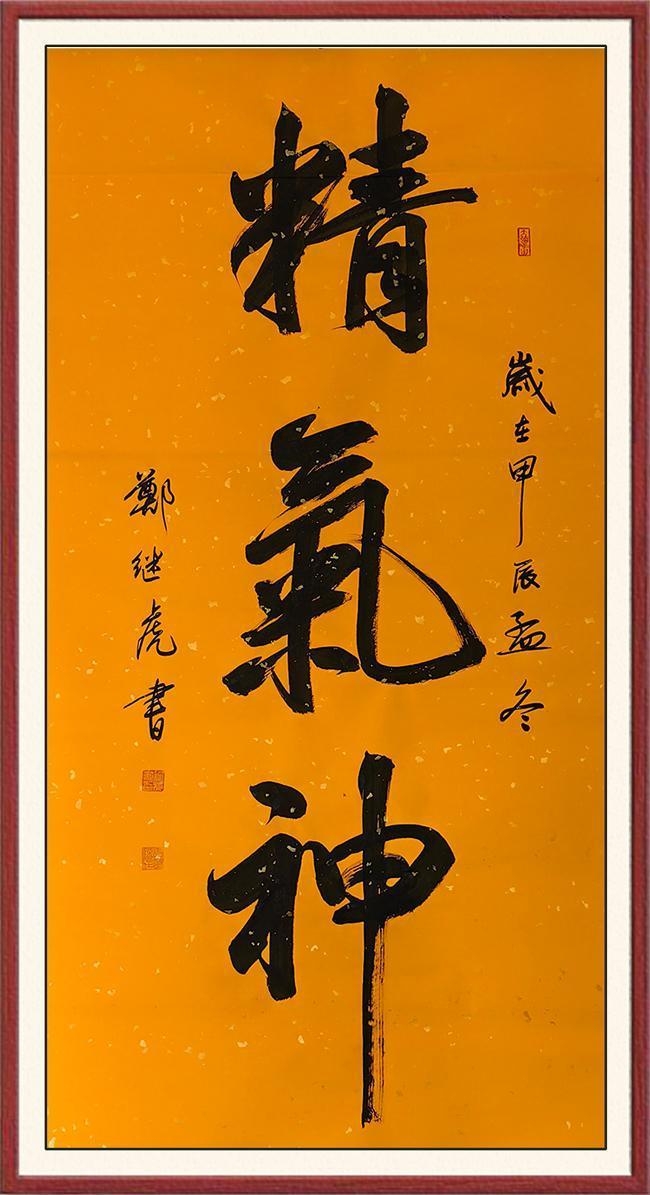 精氣神
歲在甲辰孟冬
鄭继虎書